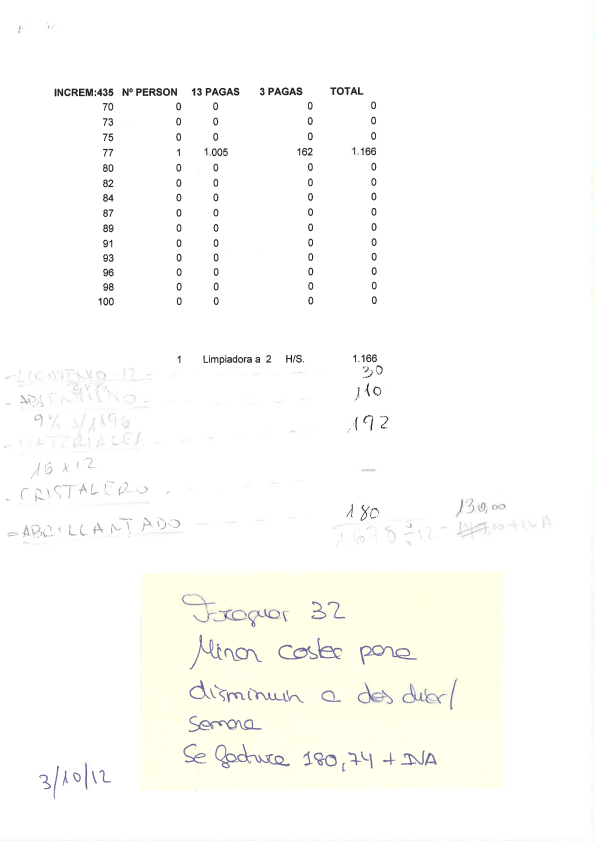 INCREM:435 Nº PERSON 13 PAGAS 3 PAGAS TOTAL
70 0 0 0 0
73 0 0 0 0
75 0 0 0 0
77 1 1.005 162 1.166
80 0 0 0 0
82 0 0 0 0
84 0 0 0 0
87 0 0 0 0
89 0 0 0 0
91 0 0 0 0
93 0 0 0 0
96 0 0 0 0
98 0 0 0 0
100 0 0 0 0
1 Limpiadora a 2 H/S. 1.166
- CONVENIO-12 = 30
- ABSENTISMO - 110
9% s/1196
- MATERIALES 192
16 x 12
- CRISTALERO. —
= ABRILLANTADO 180 130,00
1678 ÷ 12 = ,00 + IVA
32
Minor coste para
disminuir a dos dias/
semana
Se factura 180,74 + IVA
3/10/12